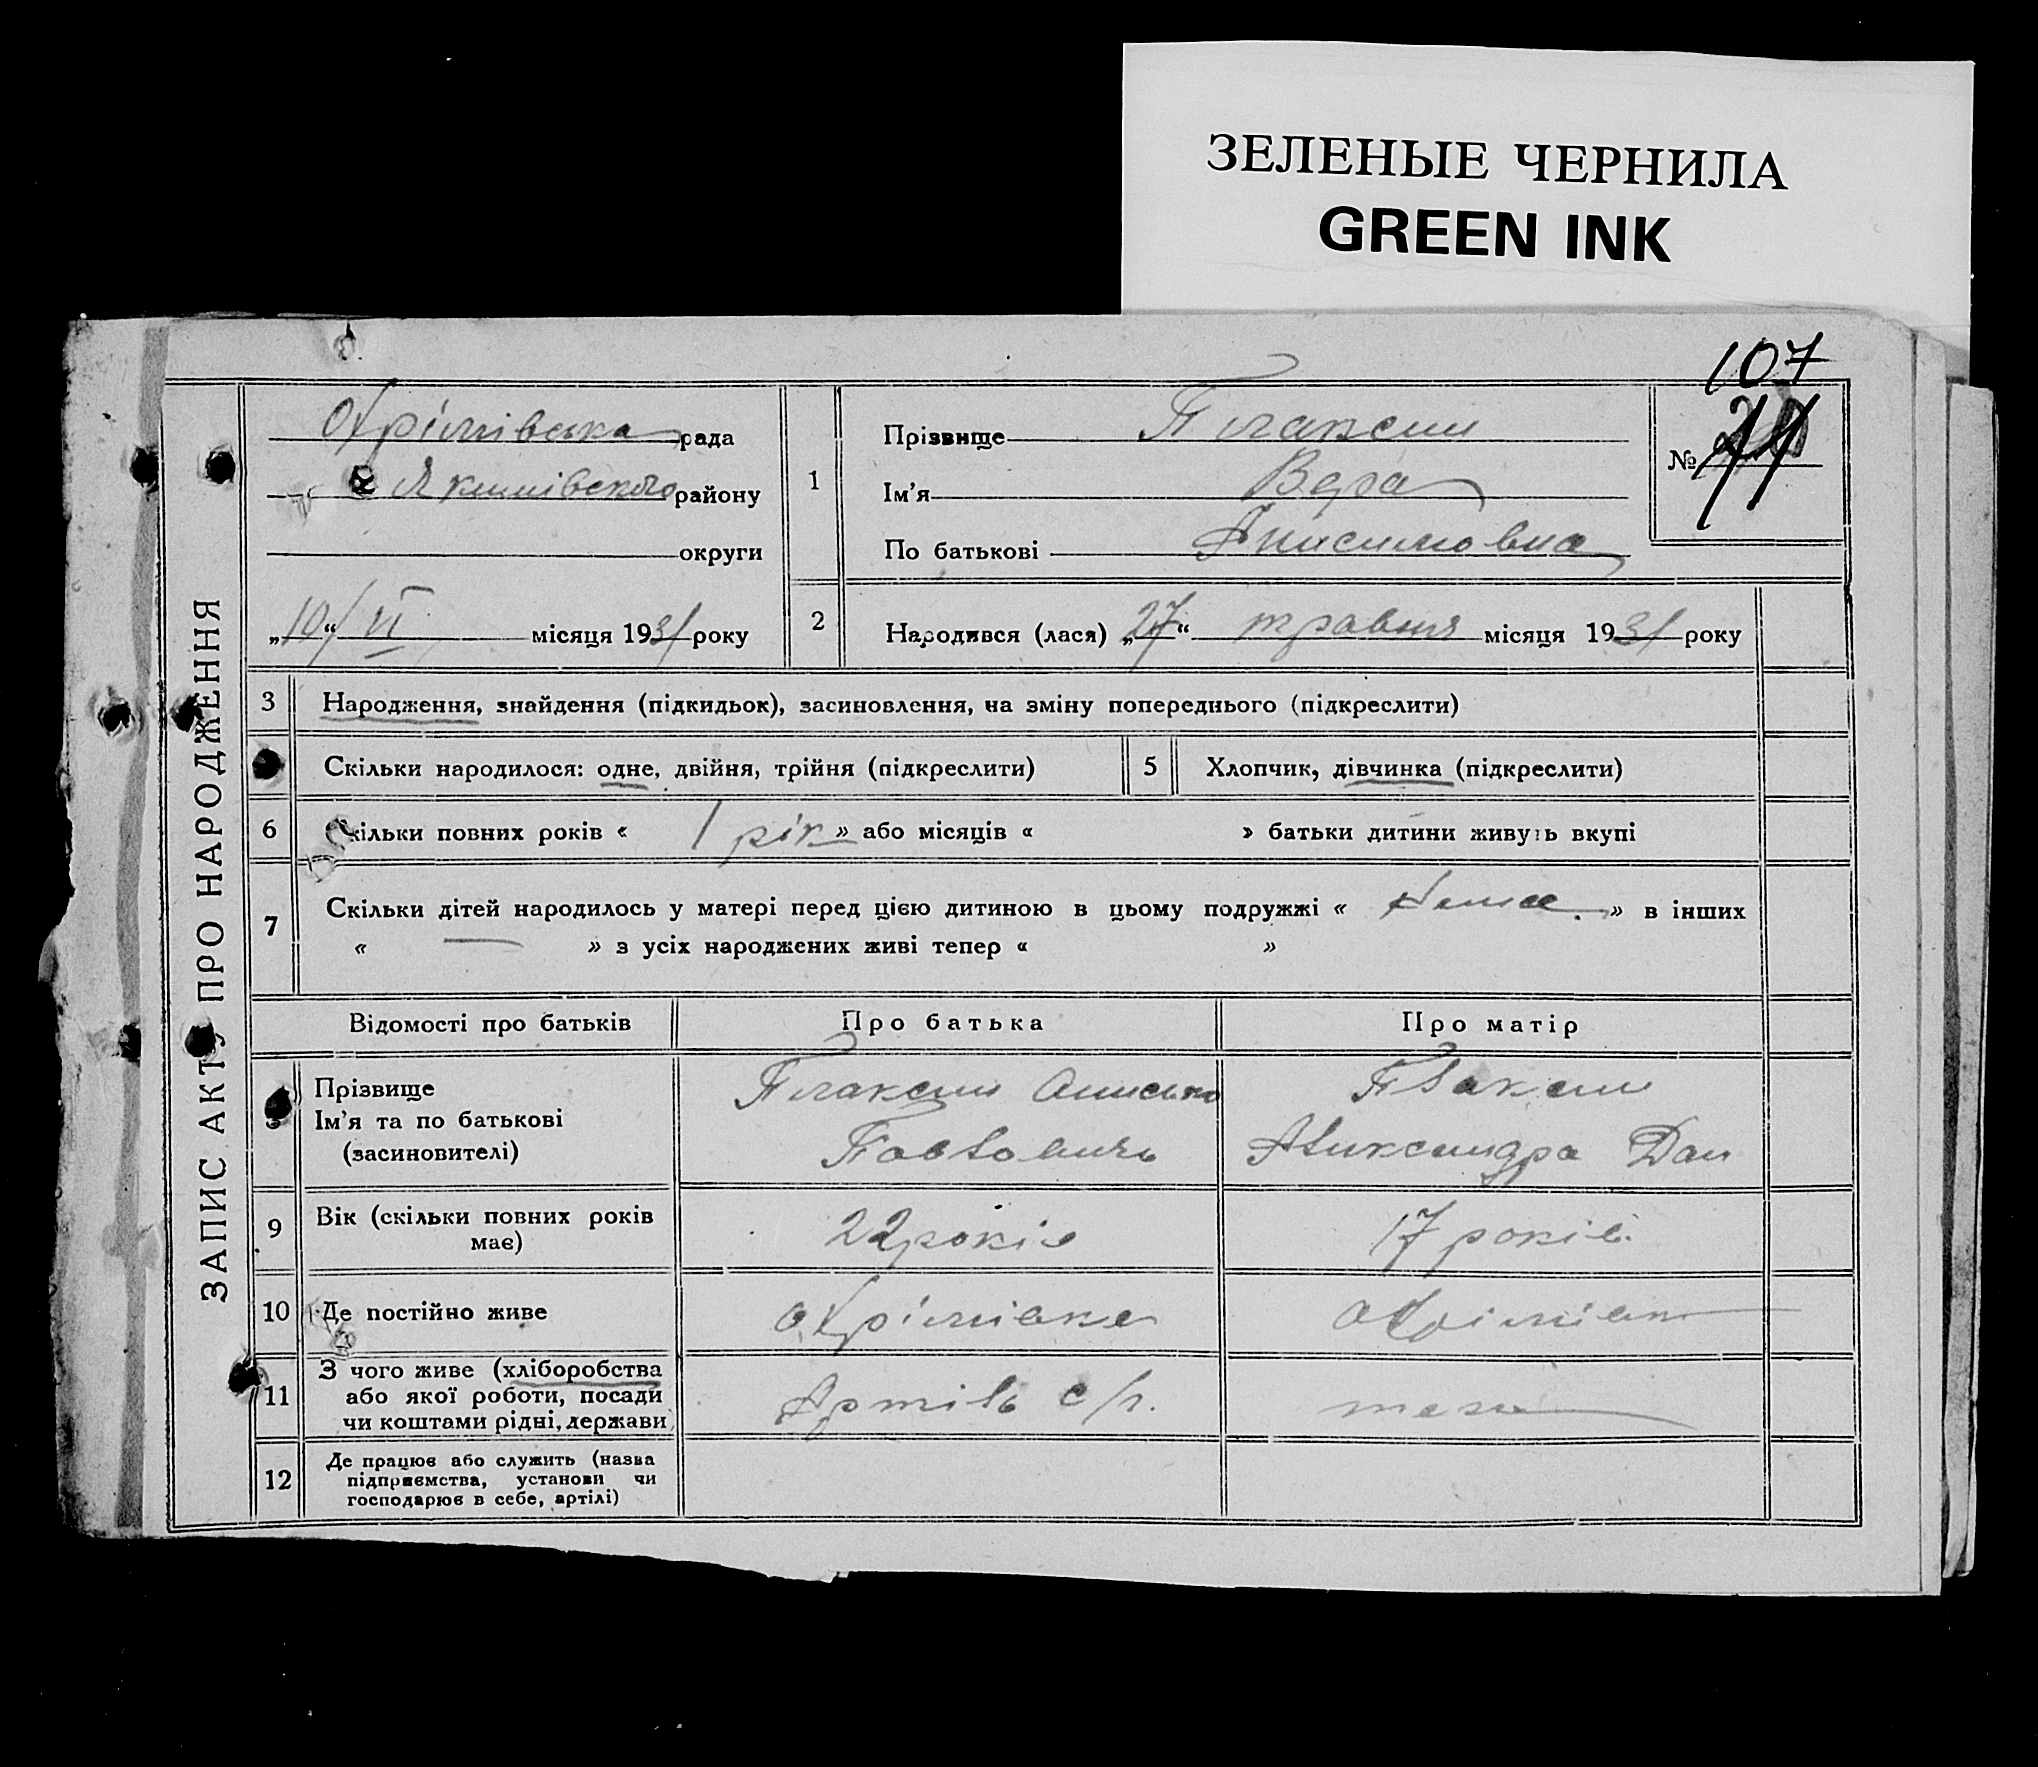 ЗЕЛЕНЫЕ ЧЕРНИЛА
GREEN INK
107
ЗАПИС АКТУ ПРО НАРОДЖЕННЯ
Охрімівська рада
Якимівського району
округи
„10“ VI місяця 1931 року
1
Прізвище Плаксий
Ім'я Вера
По батькові Анисимовна
№ 77
2
Народився (лася) „27“ травня місяця 1931 року
3 Народження, знайдення (підкидьок), засиновлення, на зміну попереднього (підкреслити)
Скільки народилося: одне, двійня, трійня (підкреслити) 5 Хлопчик, дівчинка (підкреслити)
6 Скільки повних років « 1 рік » або місяців « » батьки дитини живуть вкупі
7 Скільки дітей народилось у матері перед цією дитиною в цьому подружжі « Нема » в інших
« — » з усіх народжених живі тепер « »
Відомості про батьків Про батька Про матір
Прізвище Плаксий Плаксий
Ім'я та по батькові
(засновителі) Павлович Александра Дан
9 Вік (скільки повних років має) 22 років 17 років
10 Де постійно живе Охрімівка Охрімівк
11 З чого живе (хліборобства
або якої роботи, посади
чи коштами рідні, держави) Артіль с/г.
12 Де працює або служить (назва
підприємства, установи чи
господарює в себе, артілі)